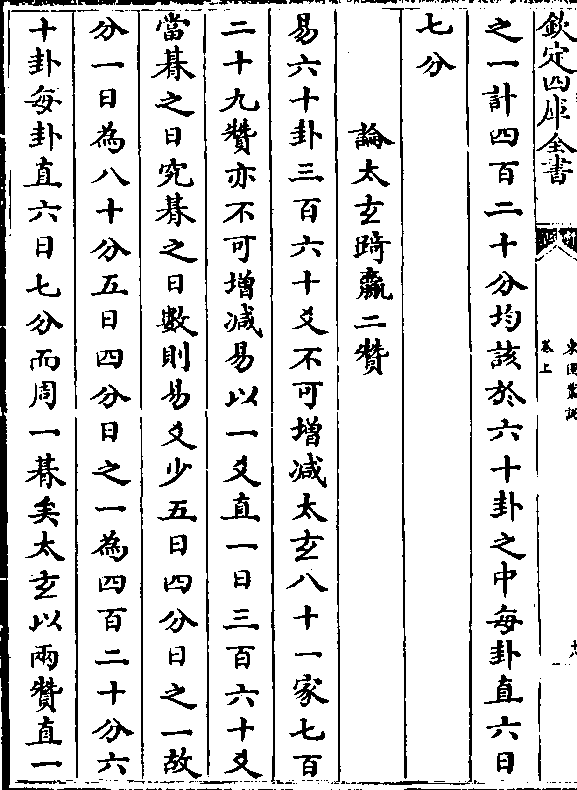 欽定四庫全書
卷上
之一計四百二十分均該於六十卦之中每卦直六日
七分
論太玄踦贏二贊
易六十卦三百六十爻不可增减太玄八十一家七百
二十九贊亦不可增减易以一爻直一日三百六十爻
當朞之日究朞之日數則易爻少五日四分日之一故
分一日為八十分五日四分日之一為四百二十分六
十卦每卦直六日七分而周一朞矣太玄以兩贊直一